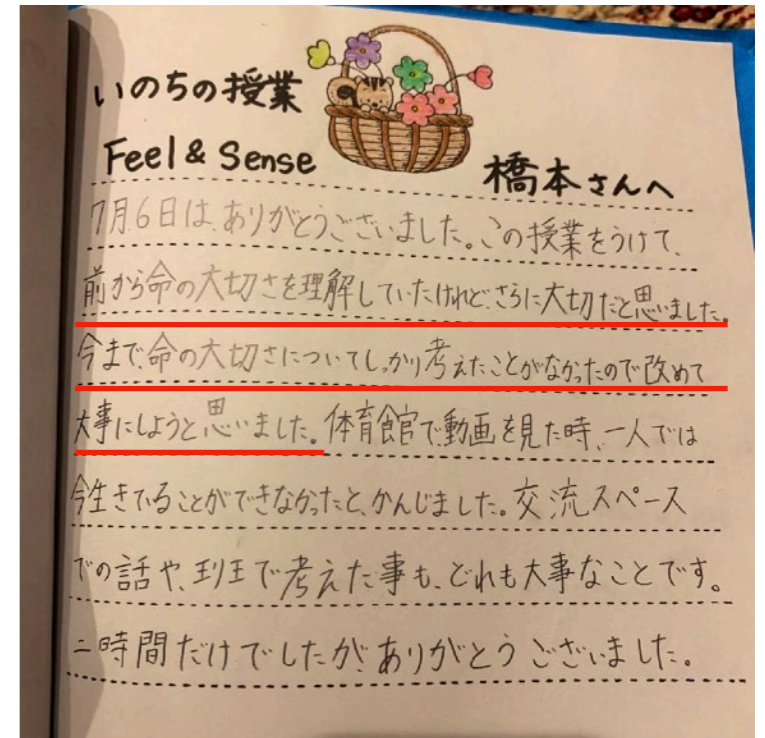 いのちの授業
Feel & Sense
橋本さんへ
7月6日は、ありがとうございました。この授業をうけて、
前から命の大切さを理解していたけれど、さらに大切だと思いました。
今まで、命の大切さについてしっかり考えたことがなかったので改めて
大事にしようと思いました。体育館で動画を見た時、一人では
今生きていることができなかったと、かんじました。交流スペース
での話や、班で考えた事も、どれも大事なことです。
二時間だけでしたが、ありがとうございました。